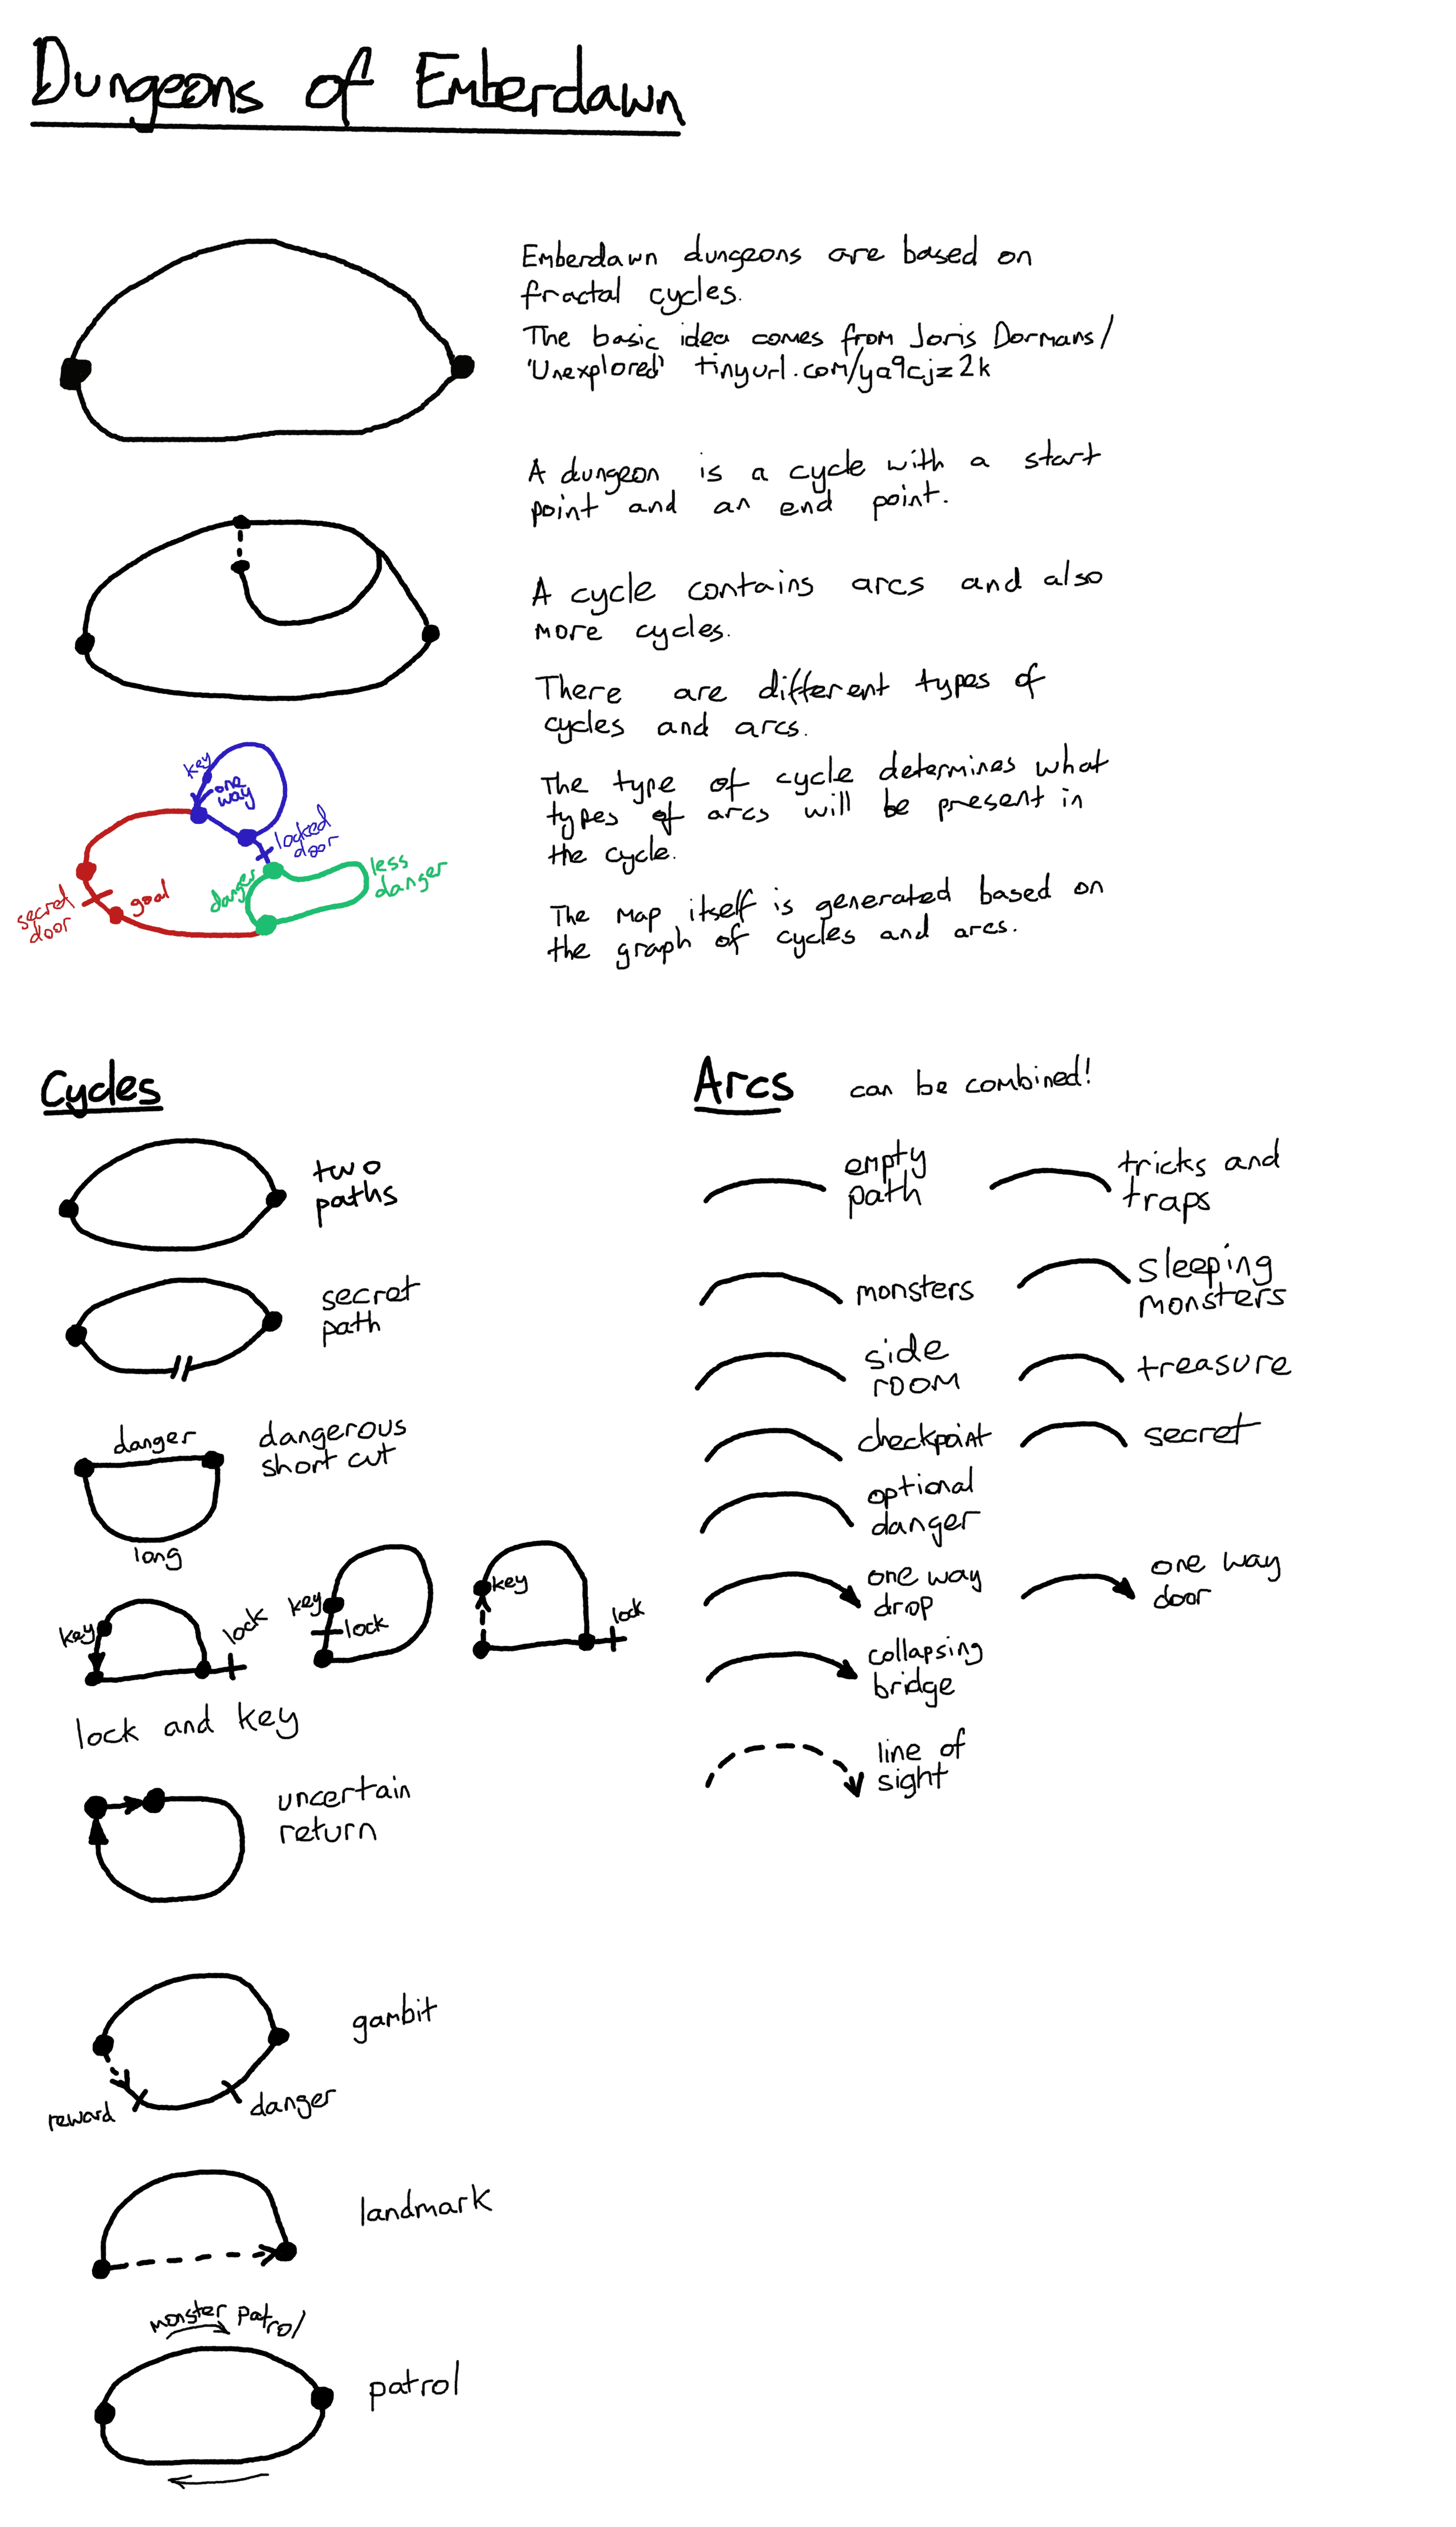 Dungeons of Emberdawn
Emberdawn dungeons are based on
fractal cycles.
The basic idea comes from Joris Dormans/
'Unexplored' tinyurl.com/ya9cjz2k
A dungeon is a cycle with a start
point and an end point.
A cycle contains arcs and also
more cycles.
There are different types of
cycles and arcs.
The type of cycle determines what
types of arcs will be present in
the cycle.
The map itself is generated based on
the graph of cycles and arcs.
key
one
way
locked
door
less
danger
danger
goal
secret
door
Cycles
two
paths
secret
path
danger
dangerous
short cut
long
key
lock
key
lock
key
lock
lock and key
uncertain
return
gambit
reward
danger
landmark
monster patrol
patrol
Arcs can be combined!
empty
path
tricks and
traps
monsters
sleeping
monsters
side
room
treasure
checkpoint
secret
optional
danger
one way
drop
one way
door
collapsing
bridge
line of
sight